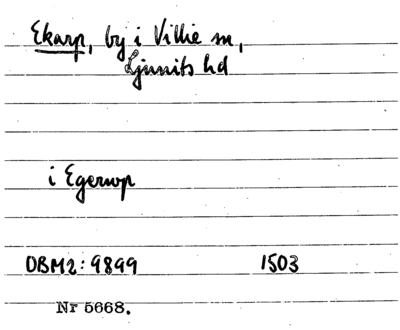 Ekarp, by i Villie sn,
Ljunits hd
i Egerup
DBM2:9899 1503
Nr 5668.